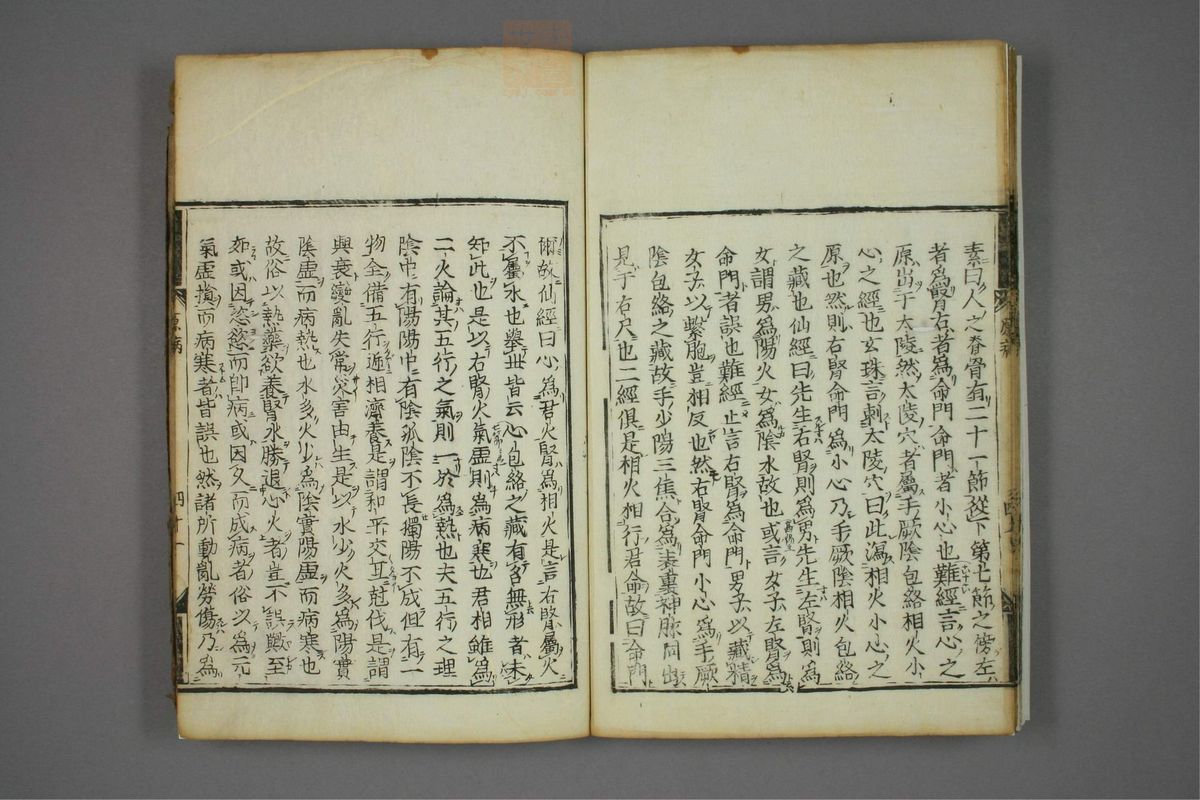 素曰人之脊骨有二十一節從下第七節之傍左
者爲腎右者爲命門命門者小心也難經言心之
原出于太陵然太陵穴者屬手厥陰包絡相火小
心之經也玄珠言刺太陵穴曰此瀉相火小心之
原也然則右腎命門爲小心乃手厥陰相火包絡
之藏也仙經曰先生右腎則爲男先生左腎則爲
女謂男爲陽火女爲陰水故也或言女子左腎爲
命門者誤也難經止言右腎爲命門男子以藏精
女子以繫胞豈相反也然右腎命門小心爲手厥
陰包絡之藏故手少陽三焦合爲表裏神脉同出
見于右尺也二經俱是相火相行君命故曰命門
爾故仙經曰心爲君火腎爲相火是言右腎屬火
不屬水也舉世皆云心包絡之藏有名無形者未
知此也是以右腎火氣虛則爲病寒也君相雖爲
二火論其五行之氣則一於爲熱也夫五行之理
陰中有陽陽中有陰孤陰不長獨陽不成但有一
物全備五行遞相濟養是謂和平交互尅伐是謂
興衰變亂失常災害由生是以水少火多爲陽實
陰虛而病熱也水多火少爲陰實陽虛而病寒也
故俗以熱藥欲養腎水勝退心火者豈不誤歟至
如或因恣慾而即病或因久而成病者俗以爲元
氣虛損而病寒者皆誤也然諸所動亂勞傷乃爲
原病